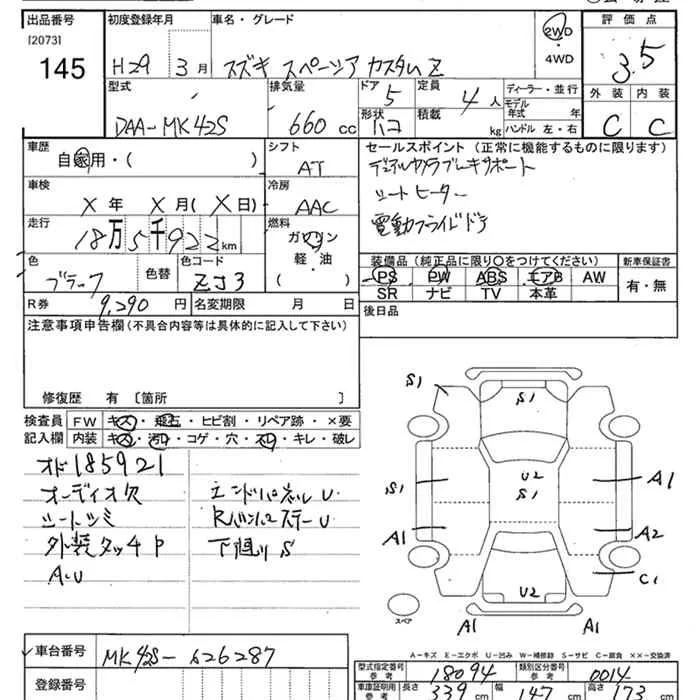 出品番号 初度登録年月 車名・グレード 評価点
[2073] 2WD
145 H29 3月 スズキ スペーシア カスタム Z ・ 4WD 3.5
型式 排気量 ドア 5 定員 4人 ディーラー・並行 外装 内装
DAA-MK42S 660 cc 形状 ハコ 積載 kg モデル年式 年 C C
ハンドル 左・右
車歴 シフト セールスポイント (正常に機能するものに限ります)
自家用・( ) AT デュアルカメラブレーキサポート
車検 冷房 シートヒーター
X年 X月(X日) AAC 電動スライドドア
走行 燃料
18万5千922km ガソリン
軽・油
( )
色 色替 色コード 装備品 (純正品に限り○をつけてください) 新車保証書
ブラック ZJ3 PS PW ABS エアB AW 有・無
SR ナビ TV 本革
R券 9,290円 名変期限 月 日 後日品
注意事項申告欄(不具合内容等は具体的に記入して下さい)
修復歴 有 [箇所 ]
検査員 FW キズ・飛石・ヒビ割・リペア跡・×要
記入欄 内装 キズ・汚れ・コゲ・穴・スレ・キレ・破レ
オド185921
オーディオ欠 エンドパネルU
シートシミ Rバンパステーu
外装タッチP 下廻りS
A.U
S1 S1
U2
S1
S1 A1
A1 A2
C1
U2
スペア A1 A1
A-キズ E-エクボ U-凹み W-補修跡 S-サビ C-腐食 ××-交換済
車台番号 MK42S-626287
登録番号
型式指定番号 参考 18094 類別区分番号 参考 0014
車庫証明用 参考 長さ 339cm 幅 147cm 高さ 173cm